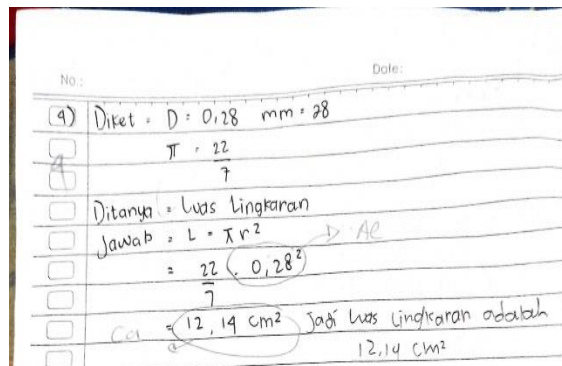 No: Date:
4) Diket = D = 0,28 mm = 28
π = 22
7
Ditanya = Luas Lingkaran
Jawab = L = πr²
= 22 . 0,28² D Al
7
Ca = 12,14 cm² Jadi Luas Lingkaran adalah
12,14 cm²